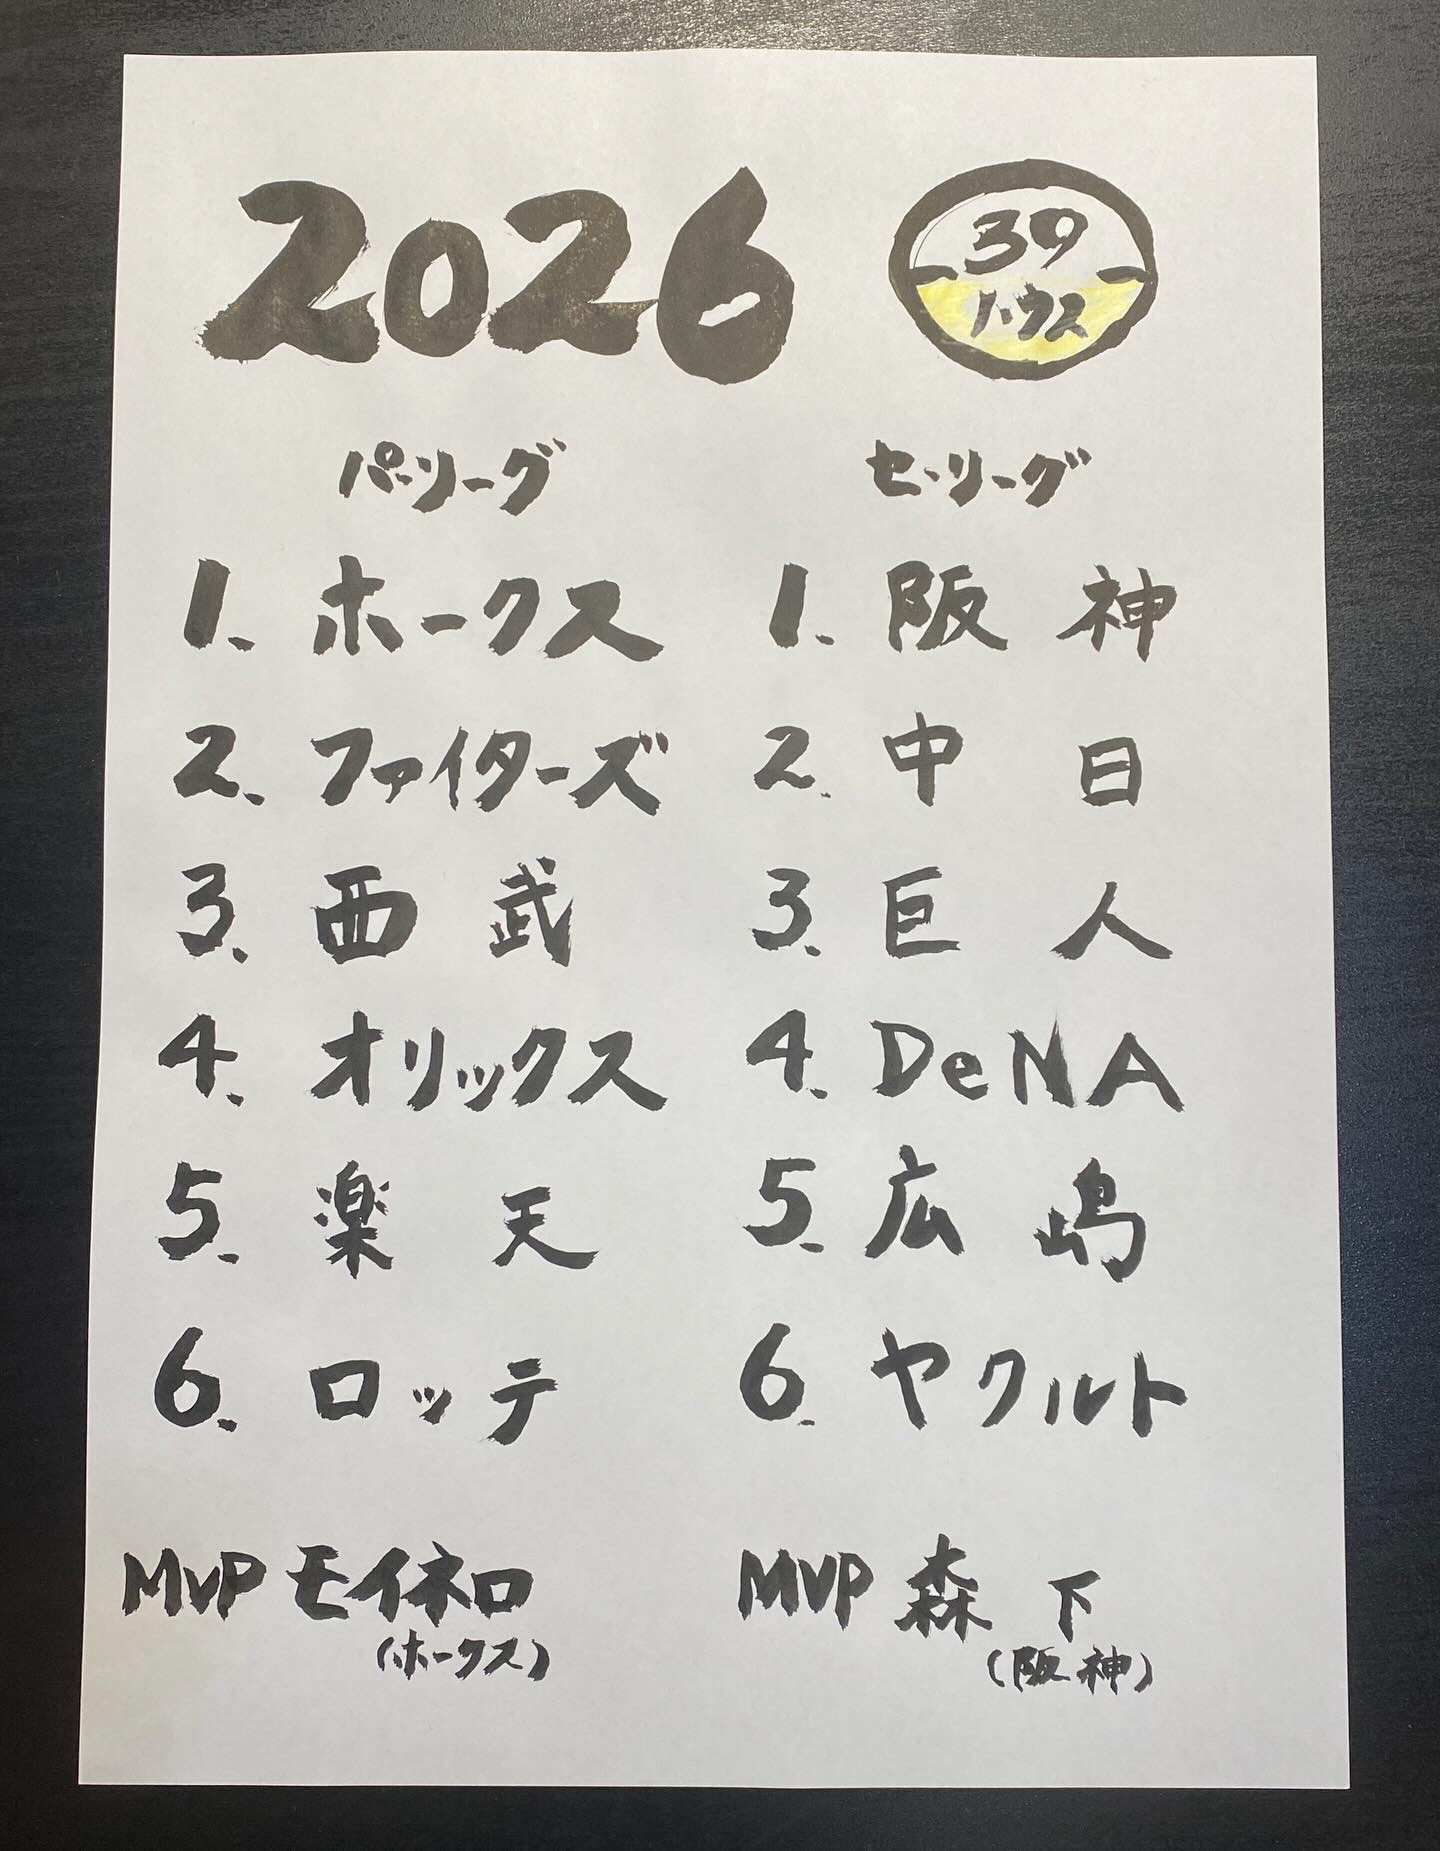 2026
39
ハウス
パ・リーグ
1. ホークス
2. ファイターズ
3. 西武
4. オリックス
5. 楽天
6. ロッテ
MVP モイネロ
(ホークス)
セ・リーグ
1. 阪神
2. 中日
3. 巨人
4. DeNA
5. 広島
6. ヤクルト
MVP 森下
(阪神)